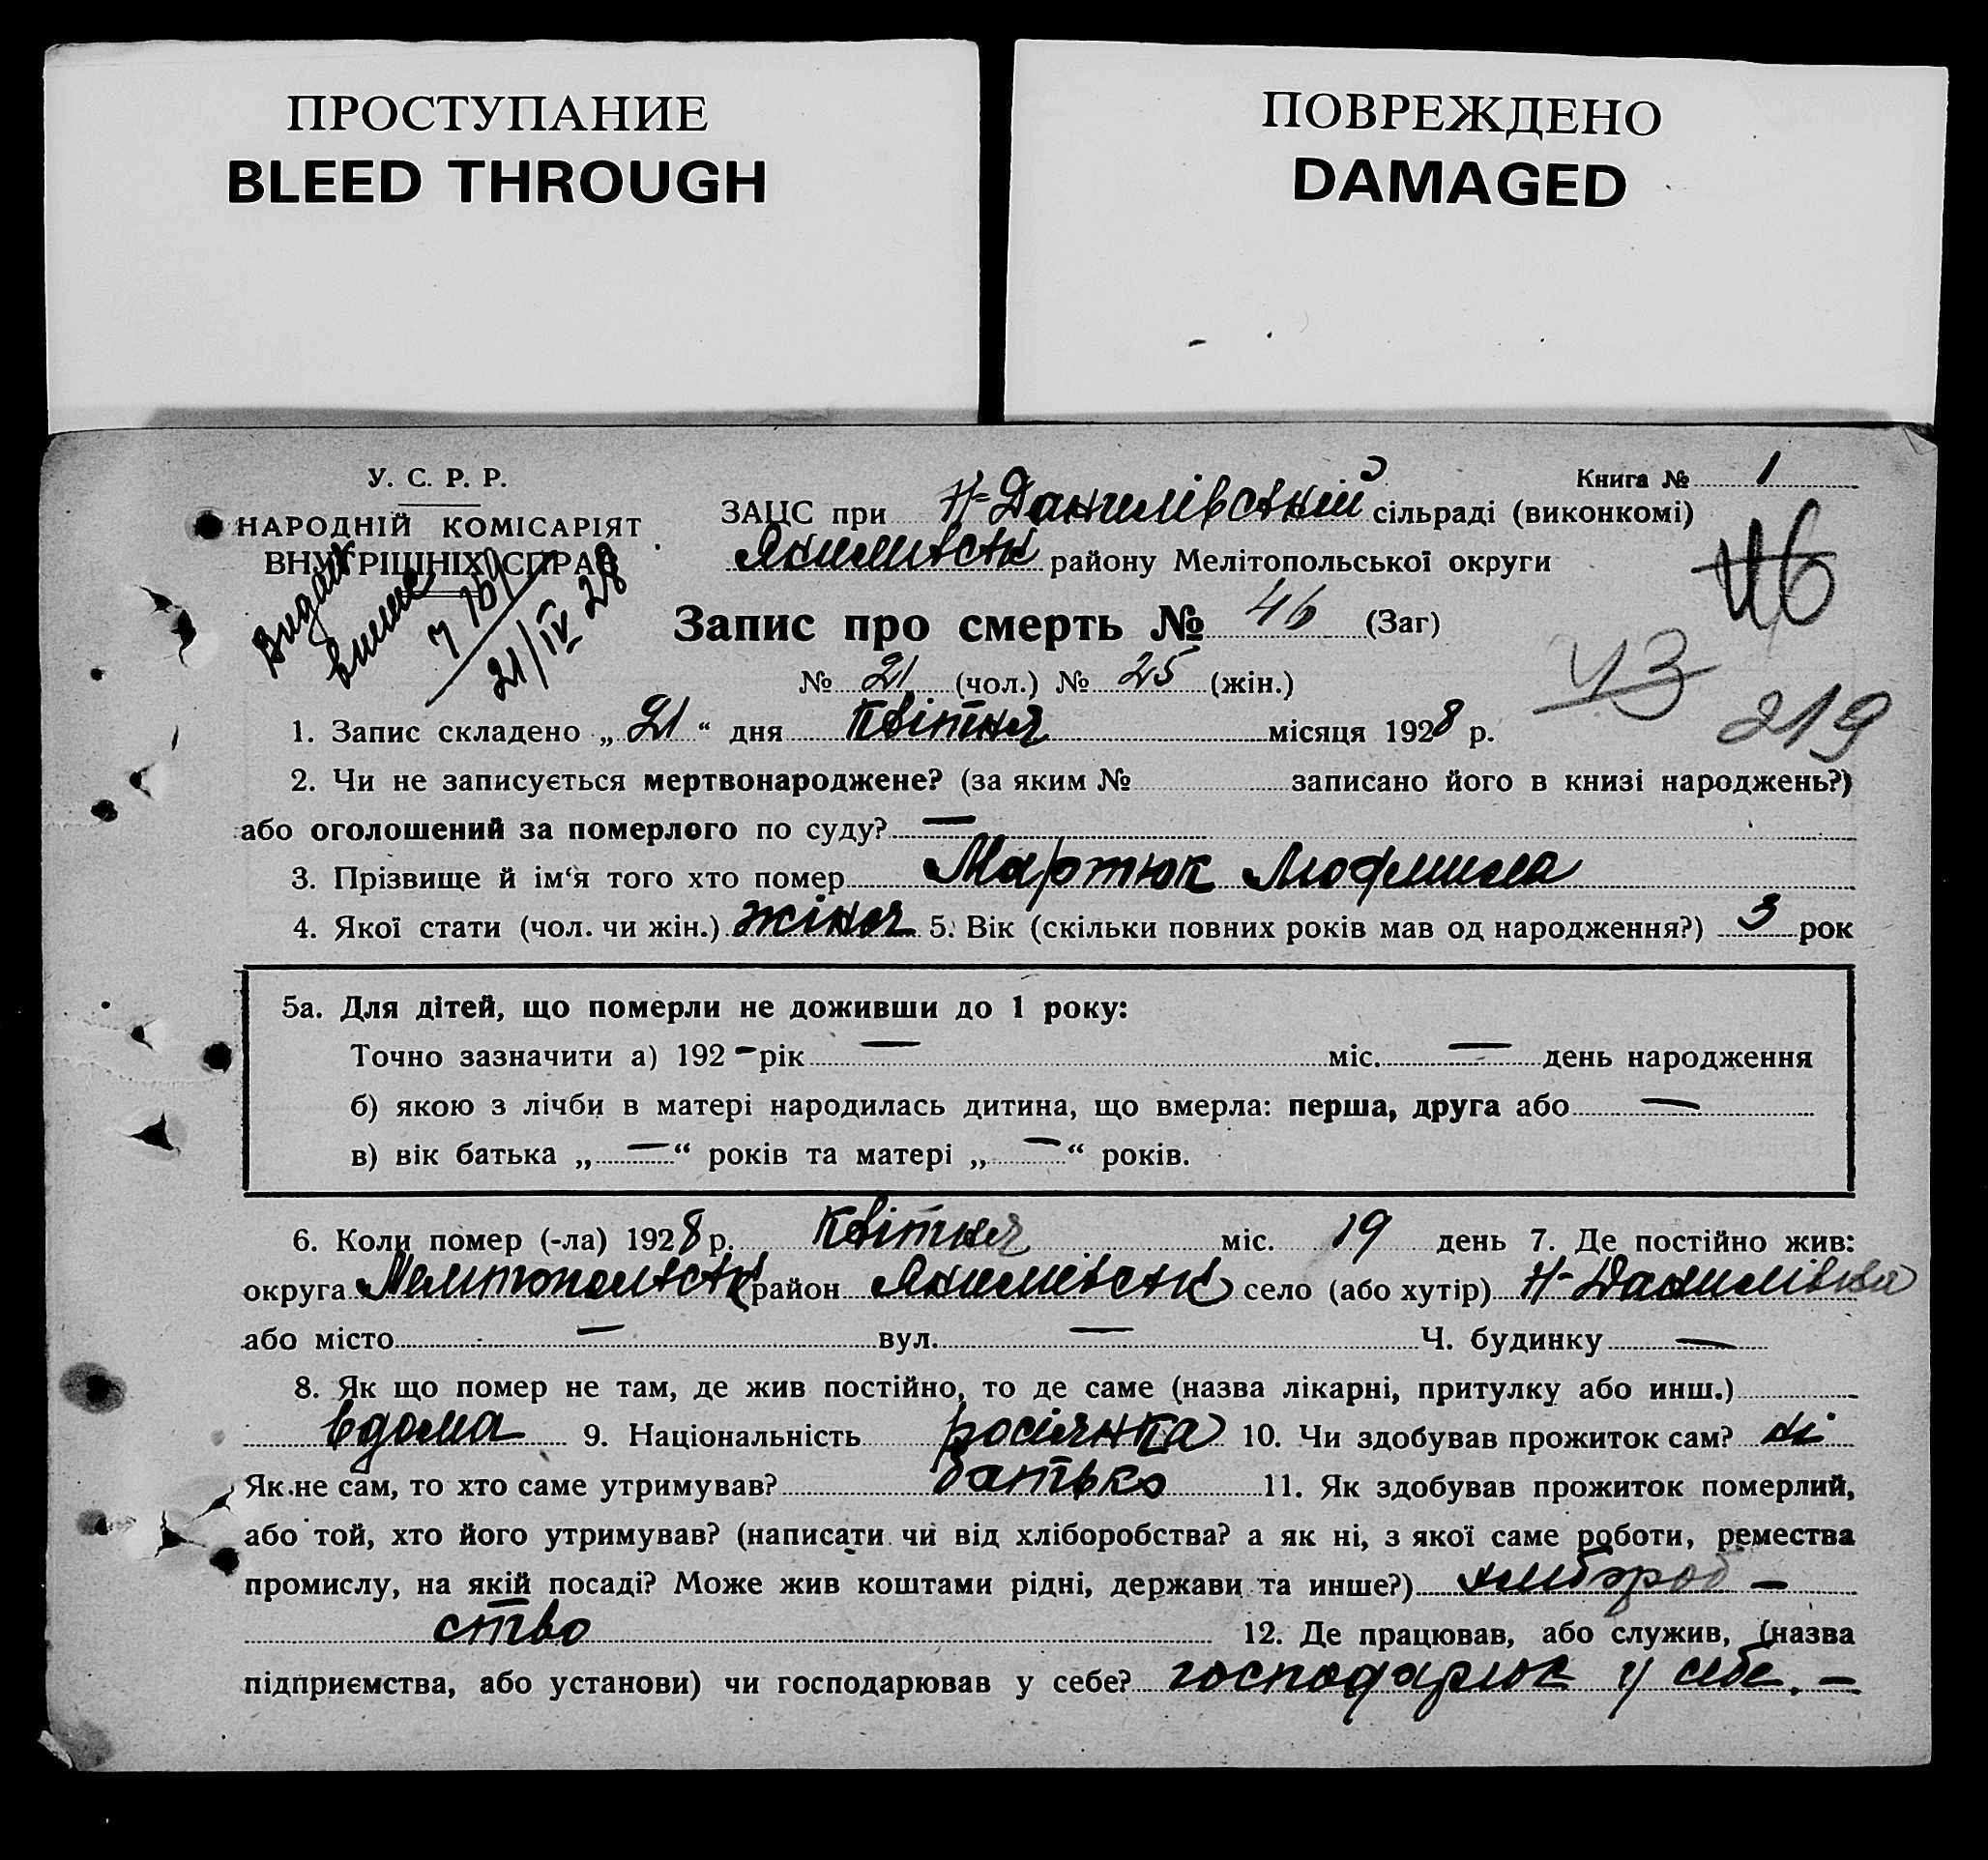 ПРОСТУПАНИЕ
BLEED THROUGH
ПОВРЕЖДЕНО
DAMAGED
У. С. Р. Р.
НАРОДНІЙ КОМІСАРІЯТ
ВНУТРІШНІХ СПРАВ
21/IV 28
Книга № 1
ЗАЦС при Н-Данилівській сільраді (виконкомі)
Якимівськ району Мелітопольської округи
46
Запис про смерть № 46 (Заг)
43
№ 21 (чол.) № 25 (жін.)
219
1. Запис складено „ 21 “ дня Квітня місяця 1928 р.
2. Чи не записується мертвонароджене? (за яким № записано його в книзі народжень?)
або оголошений за померлого по суду? —
3. Прізвище й ім‘я того хто помер Мартюк Людмила
4. Якої стати (чол. чи жін.) жіноч 5. Вік (скільки повних років мав од народження?) 3 рок
5а. Для дітей, що померли не доживши до 1 року:
Точно зазначити а) 192 – рік — міс. — день народження
б) якою з лічби в матері народилась дитина, що вмерла: перша, друга або —
в) вік батька „ — “ років та матері „ — “ років.
6. Коли помер (-ла) 1928 р. Квітня міс. 19 день 7. Де постійно жив:
округа Мелітопольськ район Якимівськ село (або хутір) Н-Данилівка
або місто — вул. — Ч. будинку —
8. Як що помер не там, де жив постійно, то де саме (назва лікарні, притулку або инш.)
вдома 9. Національність росіянка 10. Чи здобував прожиток сам? ні
Як не сам, то хто саме утримував? батько 11. Як здобував прожиток померлий,
або той, хто його утримував? (написати чи від хліборобства? а як ні, з якої саме роботи, ремества
промислу, на якій посаді? Може жив коштами рідні, держави та инше?) хлібороб —
ство 12. Де працював, або служив, (назва
підприємства, або установи) чи господарював у себе? господарюв у себе. —